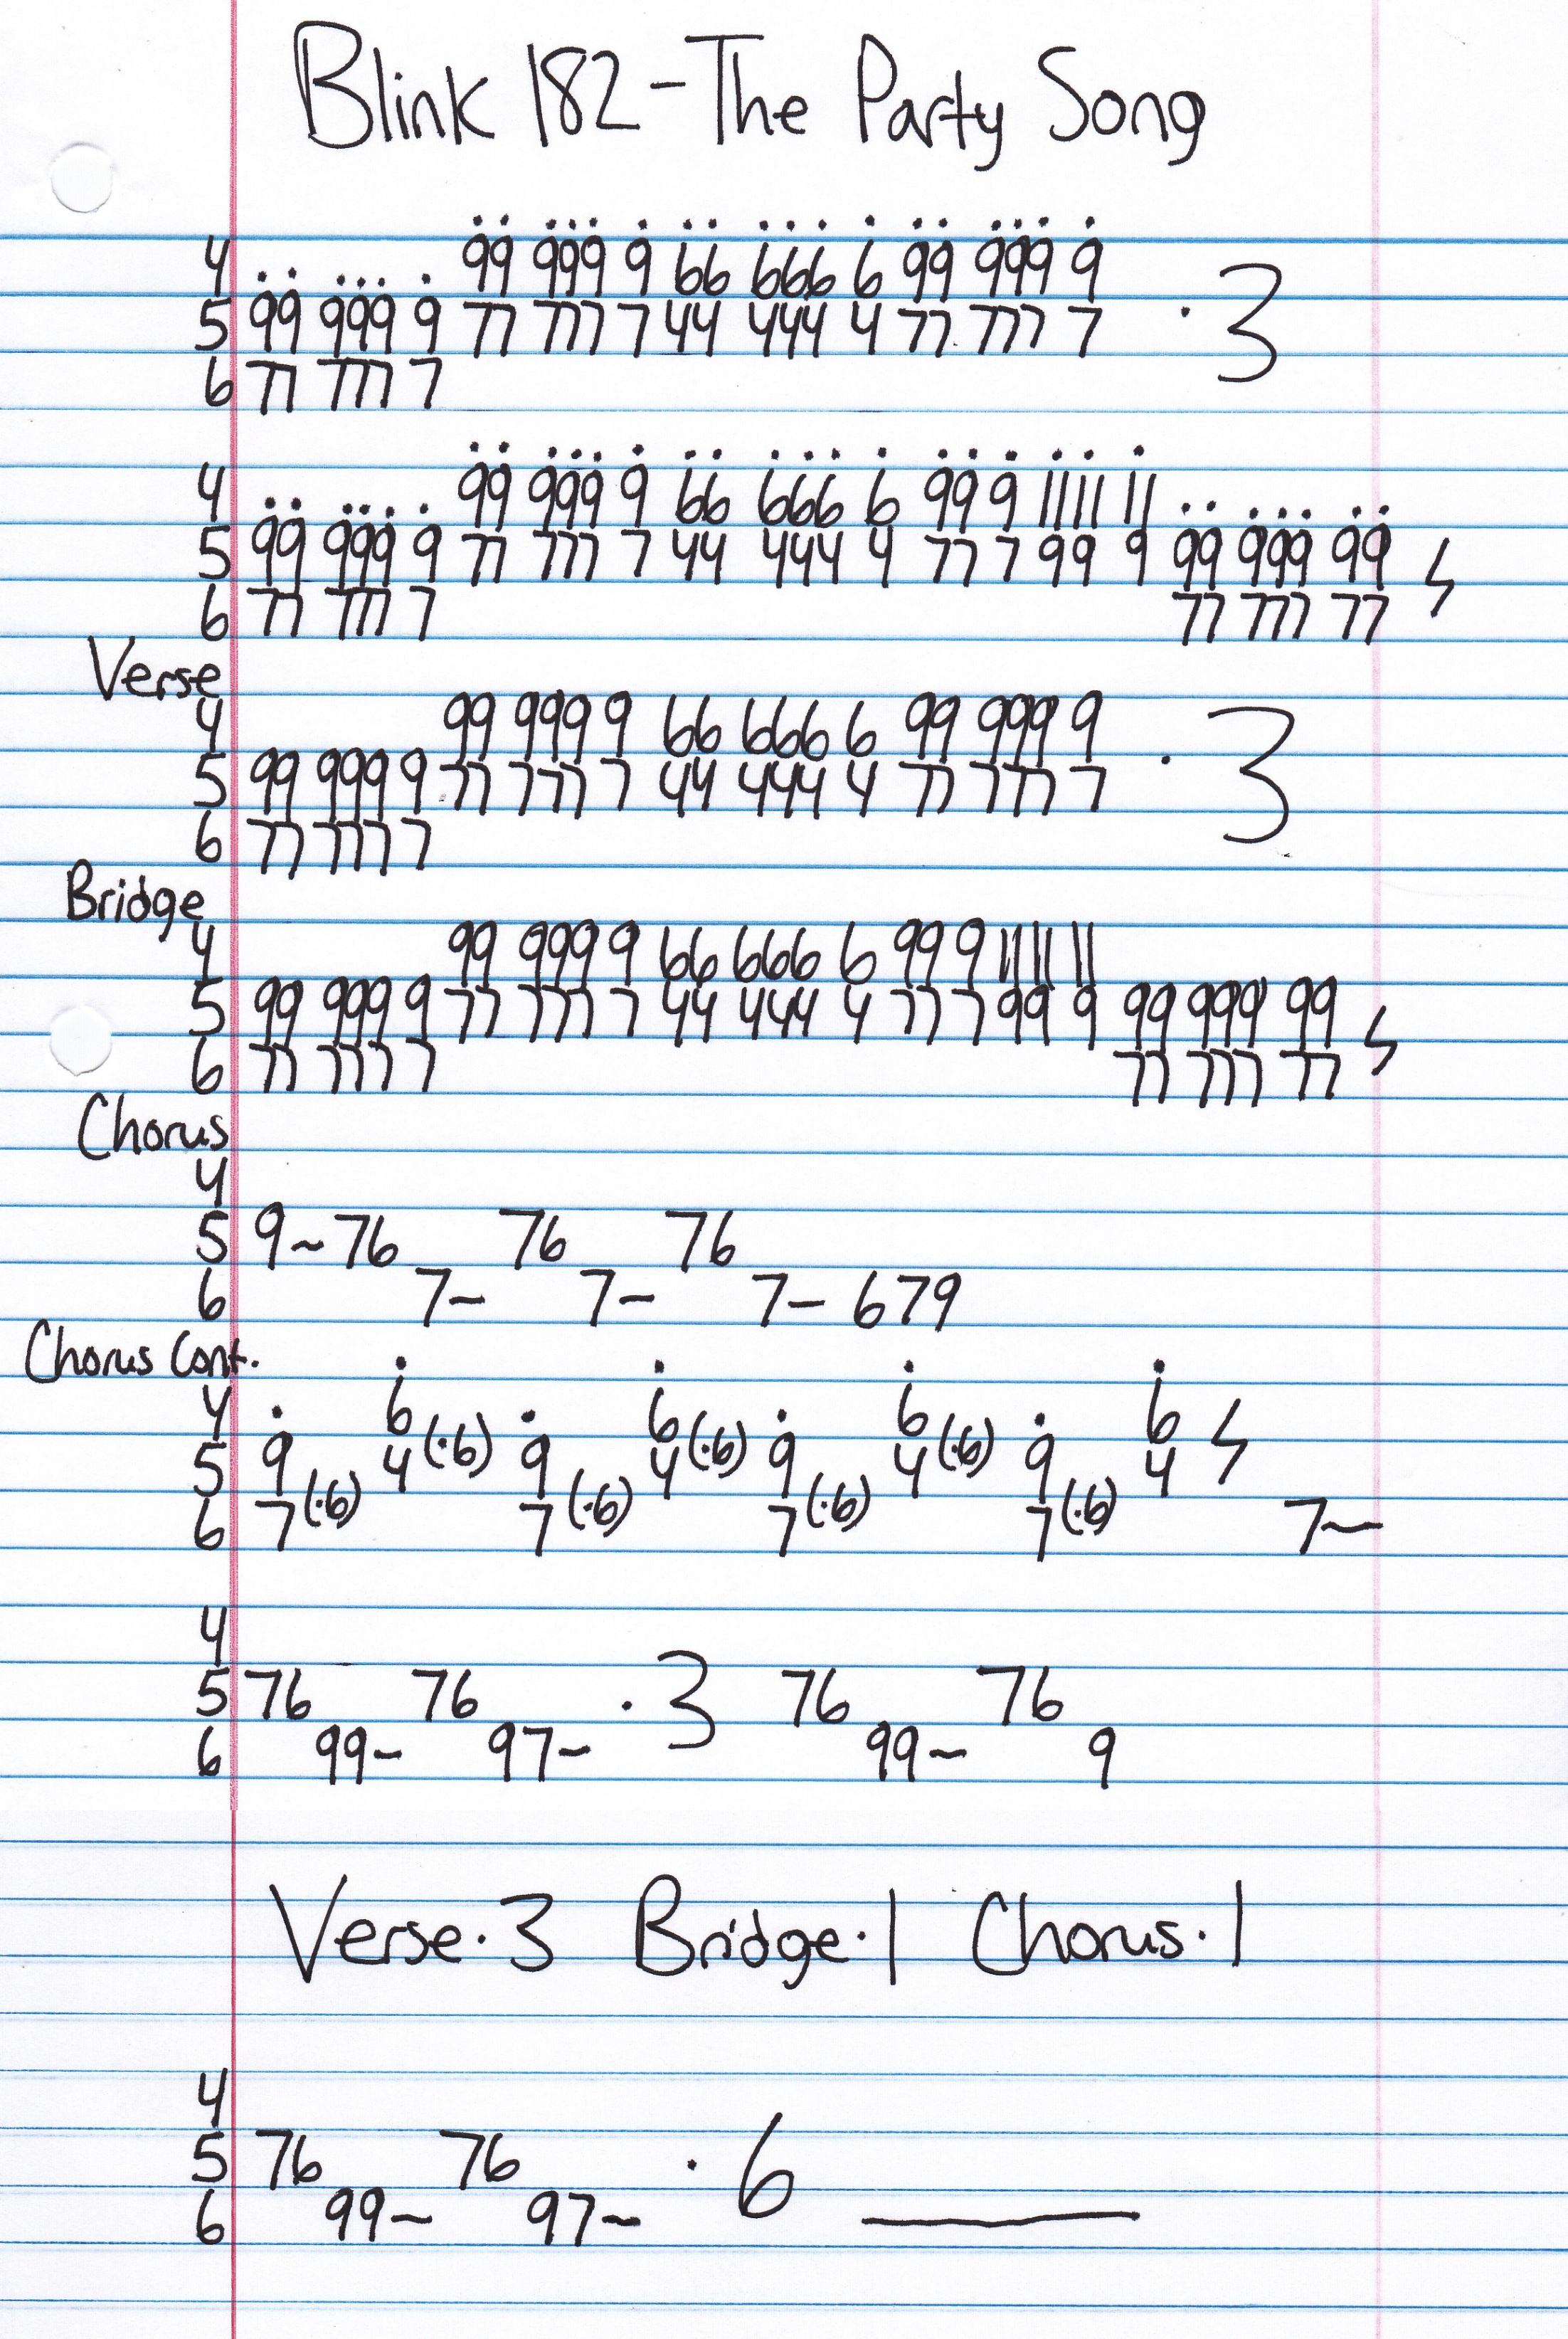 Blink 182 - The Party Song
4 99 999 9 66 666 6 99 999 9
5 99 999 9 77 777 7 44 444 4 77 777 7 · 3
6 77 777 7
4 99 999 9 66 666 6 99 9 1111 11
5 99 999 9 77 777 7 44 444 4 77 7 99 9 99 999 99
6 77 777 7 77 777 77
Verse
4 99 999 9 66 666 6 99 999 9
5 99 999 9 77 777 7 44 444 4 77 777 7 · 3
6 77 777 7
Bridge
4 99 999 9 66 666 6 99 9 1111 11
5 99 999 9 77 777 7 44 444 4 77 7 99 9 99 999 99
6 77 777 7 77 777 77
Chorus
4
5 9~76 76 76
6 7- 7- 7- 679
Chorus Cont.
4 6 6 6 6
5 9 4(·6) 9 4(·6) 9 4(·6) 9 4
6 7(·6) 7(·6) 7(·6) 7(·6) 7~
4
5 76 76 · 3 76 76
6 99~ 97~ 99~ 9
Verse·3 Bridge·1 Chorus·1
4
5 76 76 · 6
6 99~ 97~